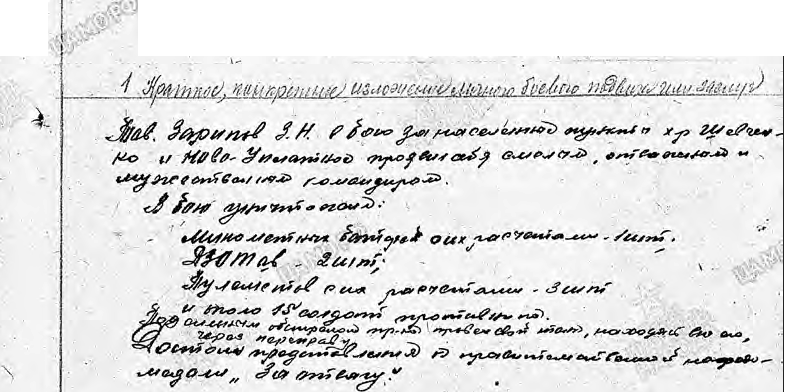 ЦАМО.РФ
1 Краткое, конкретное изложение личного боевого подвига или заслуг
Тов. Зарипов З.Н. в бою за населенные пункты хр Шевчен-
ко и Ново-Уплатное продвигаясь смелым, отважным и
мужественным командиром.
В бою уничтожил:
Минометных батарей с их расчетами - 1 шт.
ДЗОТов - 2 шт,
Пулеметов с их расчетами - 3 шт
и около 15 солдат противника.
Под сильным обстрелом пр-ка провел свой танк, находясь
через переправу
Достоин представления к правительственной награде
медали „За отвагу."